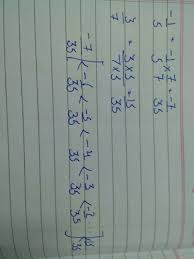 -1/5 = -1×7/5 = -7/35
3/7 = 3×5/7×5 = 15/35
-7/35 [< -6/35 < -5/35 < -4/35 < -3/35 < -2/35 ...] 15/35